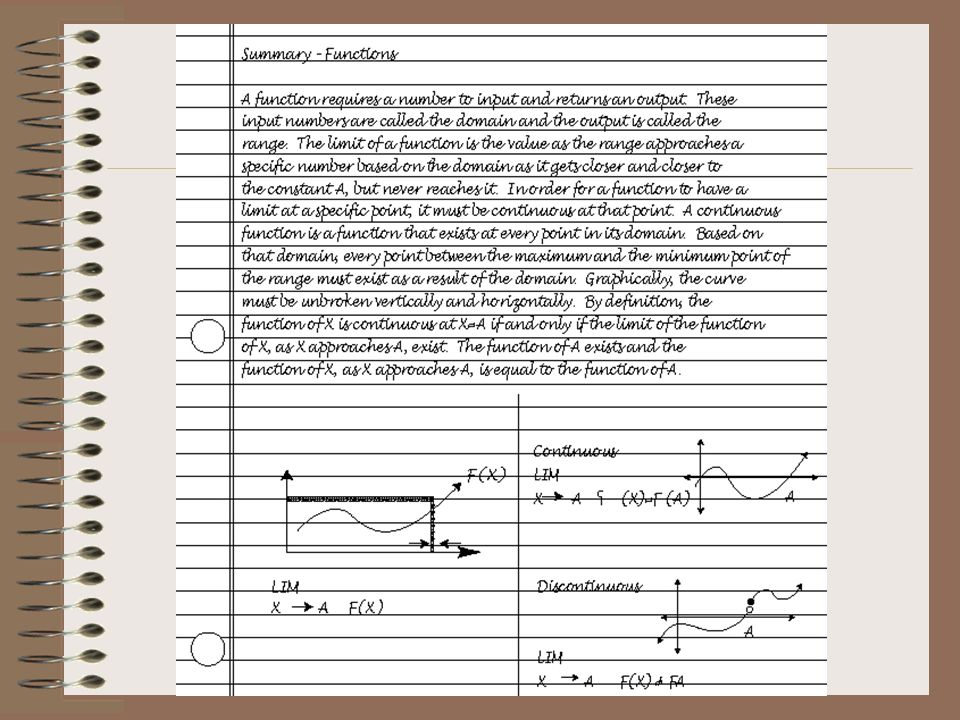 Summary - Functions
A function requires a number to input and returns an output. These
input numbers are called the domain and the output is called the
range. The limit of a function is the value as the range approaches a
specific number based on the domain as it gets closer and closer to
the constant A, but never reaches it. In order for a function to have a
limit at a specific point, it must be continuous at that point. A continuous
function is a function that exists at every point in its domain. Based on
that domain, every point between the maximum and the minimum point of
the range must exist as a result of the domain. Graphically, the curve
must be unbroken vertically and horizontally. By definition, the
function of X is continuous at X=A if and only if the limit of the function
of X, as X approaches A, exist. The function of A exists and the
function of X, as X approaches A, is equal to the function of A.
F(X)
LIM
X → A F(X)
Continuous
LIM
X → A (X)=F(A)
A
Discontinuous
A
LIM
X → A F(X) ≠ FA